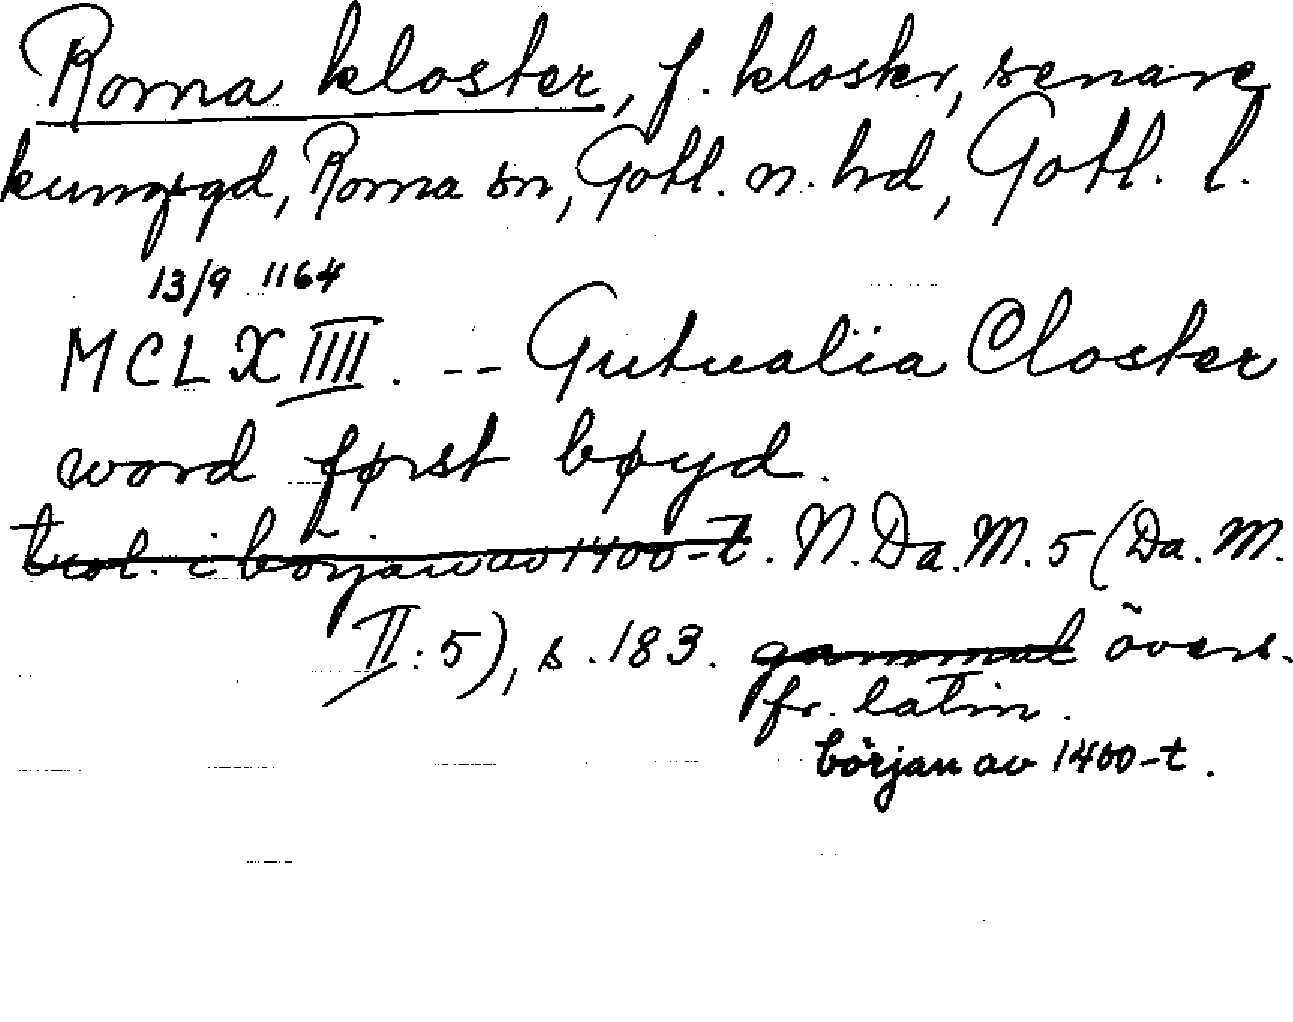 Roma kloster, f. kloster, senare
kungsgd, Roma sn, Gotl. n. hd, Gotl. l.
13/9 1164
MCLXIIII. -- Gutualia Closter
word først bøyd.
trol. i början av 1400-t. N. Da. M. 5 (Da. M.
II: 5), s. 183. gammal övers.
fr. latin.
början av 1400-t.